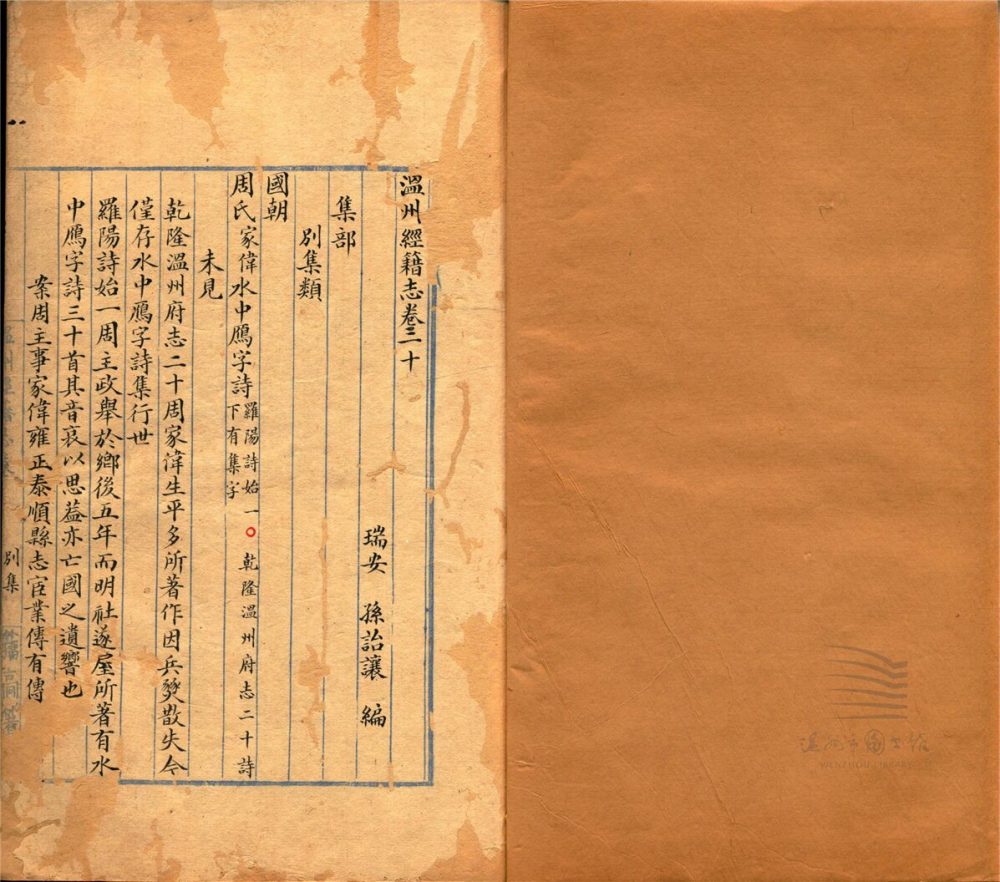 溫州經籍志卷三十
瑞安 孫詒讓 編
集部
別集類
國朝
周氏家偉水中鴈字詩 羅陽詩始一下有集字 ○ 乾隆溫州府志二十詩
未見
乾隆溫州府志二十周家偉生平多所著作因兵燹散失今
僅存水中鴈字詩集行世
羅陽詩始一周主政舉於鄉後五年而明社遂屋所著有水
中鴈字詩三十首其音哀以思蓋亦亡國之遺響也
案周主事家偉雍正泰順縣志宦業傳有傳
別集
温州市图书馆
WENZHOU LIBRARY